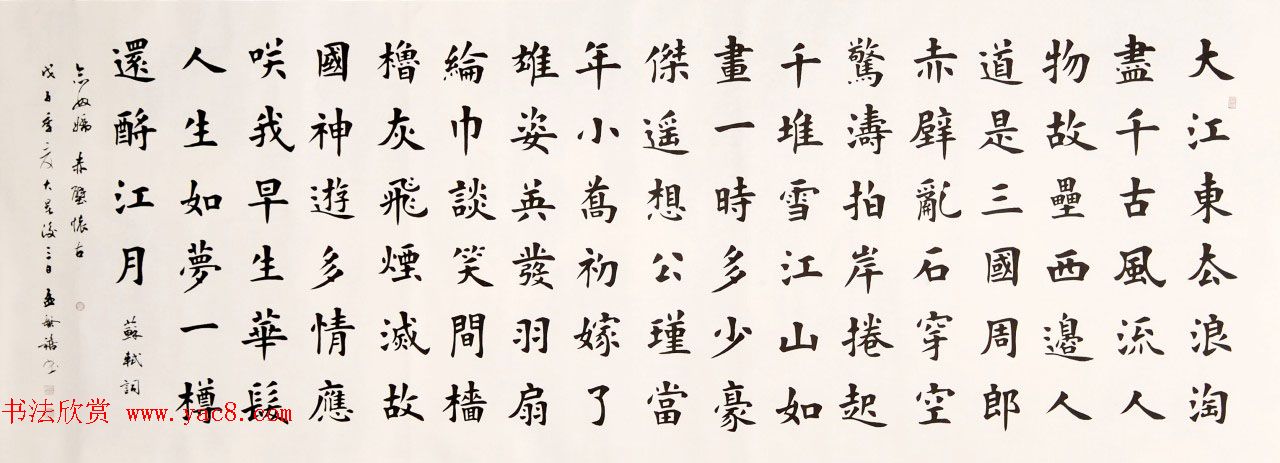 大江東去浪淘
盡千古風流人
物故壘西邊人
道是三國周郎
赤壁亂石穿空
驚濤拍岸捲起
千堆雪江山如
畫一時多少豪
傑遥想公瑾當
年小喬初嫁了
雄姿英發羽扇
綸巾談笑間檣
櫓灰飛煙滅故
國神遊多情應
咲我早生華髮
人生如夢一樽
還酹江月 蘇軾詞
念奴嬌 赤壁懷古
戊子季夏大暑後三日 孟繁禧書
书法欣赏 www.yac8.com